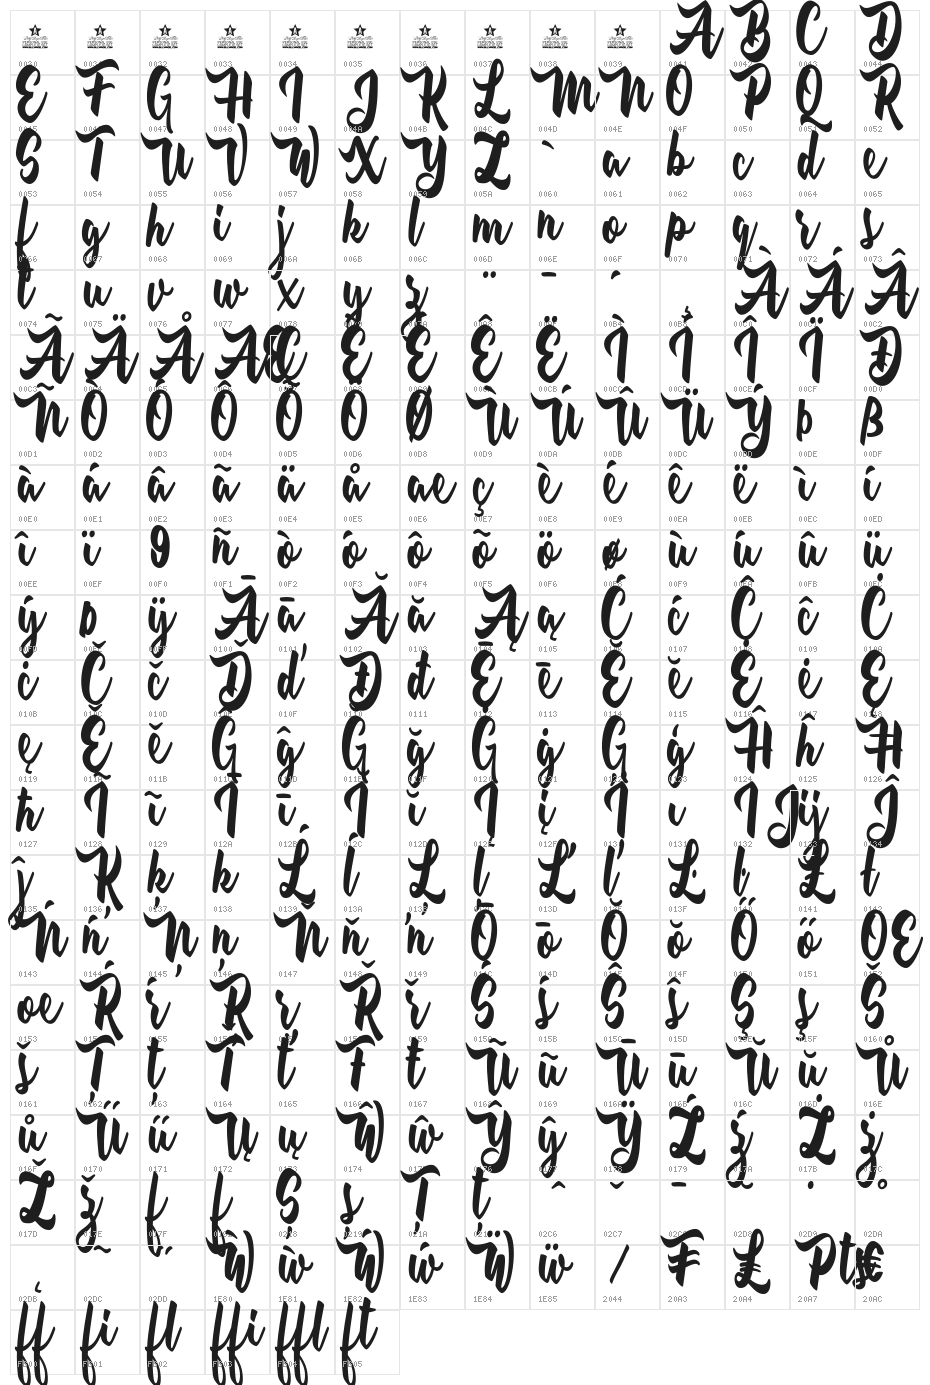 A B C D
0030 0031 0032 0033 0034 0035 0036 0037 0038 0039 0041 0042 0043 0044
E F G H I J K L M N O P Q R
0045 0046 0047 0048 0049 004A 004B 004C 004D 004E 004F 0050 0051 0052
S T U V W X Y Z ` a b c d e
0053 0054 0055 0056 0057 0058 0059 005A 0060 0061 0062 0063 0064 0065
f g h i j k l m n o p q r s
0066 0067 0068 0069 006A 006B 006C 006D 006E 006F 0070 0071 0072 0073
t u v w x y z ¨ ¯ ´ ¸ À Á Â
0074 0075 0076 0077 0078 0079 007A 00A8 00AF 00B4 00B8 00C0 00C1 00C2
Ã Ä Å Æ Ç È É Ê Ë Ì Í Î Ï Ð
00C3 00C4 00C5 00C6 00C7 00C8 00C9 00CA 00CB 00CC 00CD 00CE 00CF 00D0
Ñ Ò Ó Ô Õ Ö Ø Ù Ú Û Ü Ý Þ ß
00D1 00D2 00D3 00D4 00D5 00D6 00D8 00D9 00DA 00DB 00DC 00DD 00DE 00DF
à á â ã ä å æ ç è é ê ë ì í
00E0 00E1 00E2 00E3 00E4 00E5 00E6 00E7 00E8 00E9 00EA 00EB 00EC 00ED
î ï 9 ñ ò ó ô õ ö ø ù ú û ü
00EE 00EF 00F0 00F1 00F2 00F3 00F4 00F5 00F6 00F8 00F9 00FA 00FB 00FC
ý þ ÿ Ā ā Ă ă Ą ą Ć ć Ĉ ĉ Ċ
00FD 00FE 00FF 0100 0101 0102 0103 0104 0105 0106 0107 0108 0109 010A
ċ Č č Ď ď Đ đ Ē ē Ĕ ĕ Ė ė Ę
010B 010C 010D 010E 010F 0110 0111 0112 0113 0114 0115 0116 0117 0118
ę Ě ě Ĝ ĝ Ğ ğ Ġ ġ Ģ ģ Ĥ ĥ Ħ
0119 011A 011B 011C 011D 011E 011F 0120 0121 0122 0123 0124 0125 0126
ħ Ĩ ĩ Ī ī Ĭ ĭ Į į İ ı Ĳ ĳ Ĵ
0127 0128 0129 012A 012B 012C 012D 012E 012F 0130 0131 0132 0133 0134
ĵ Ķ ķ ĸ Ĺ ĺ Ļ ļ Ľ ľ Ŀ ŀ Ł ł
0135 0136 0137 0138 0139 013A 013B 013C 013D 013E 013F 0140 0141 0142
Ń ń Ņ ņ Ň ň ŉ Ō ō Ŏ ŏ Ő ő Œ
0143 0144 0145 0146 0147 0148 0149 014C 014D 014E 014F 0150 0151 0152
œ Ŕ ŕ Ŗ ŗ Ř ř Ś ś Ŝ ŝ Ş ş Š
0153 0154 0155 0156 0157 0158 0159 015A 015B 015C 015D 015E 015F 0160
š Ţ ţ Ť ť Ŧ ŧ Ũ ũ Ū ū Ŭ ŭ Ů
0161 0162 0163 0164 0165 0166 0167 0168 0169 016A 016B 016C 016D 016E
ů Ű ű Ų ų Ŵ ŵ Ŷ ŷ Ÿ Ź ź Ż ż
016F 0170 0171 0172 0173 0174 0175 0176 0177 0178 0179 017A 017B 017C
Ž ž ſ ƒ Ș ș Ț ț ˆ ˇ ˉ ˘ ˙ ˚
017D 017E 017F 0192 0218 0219 021A 021B 02C6 02C7 02C9 02D8 02D9 02DA
˛ ˜ ˝ Ẁ ẁ Ẃ ẃ Ẅ ẅ ⁄ ₣ ₤ ₧ €
02DB 02DC 02DD 1E80 1E81 1E82 1E83 1E84 1E85 2044 20A3 20A4 20A7 20AC
ff fi fl ffi ffl ft
FB00 FB01 FB02 FB03 FB04 FB05